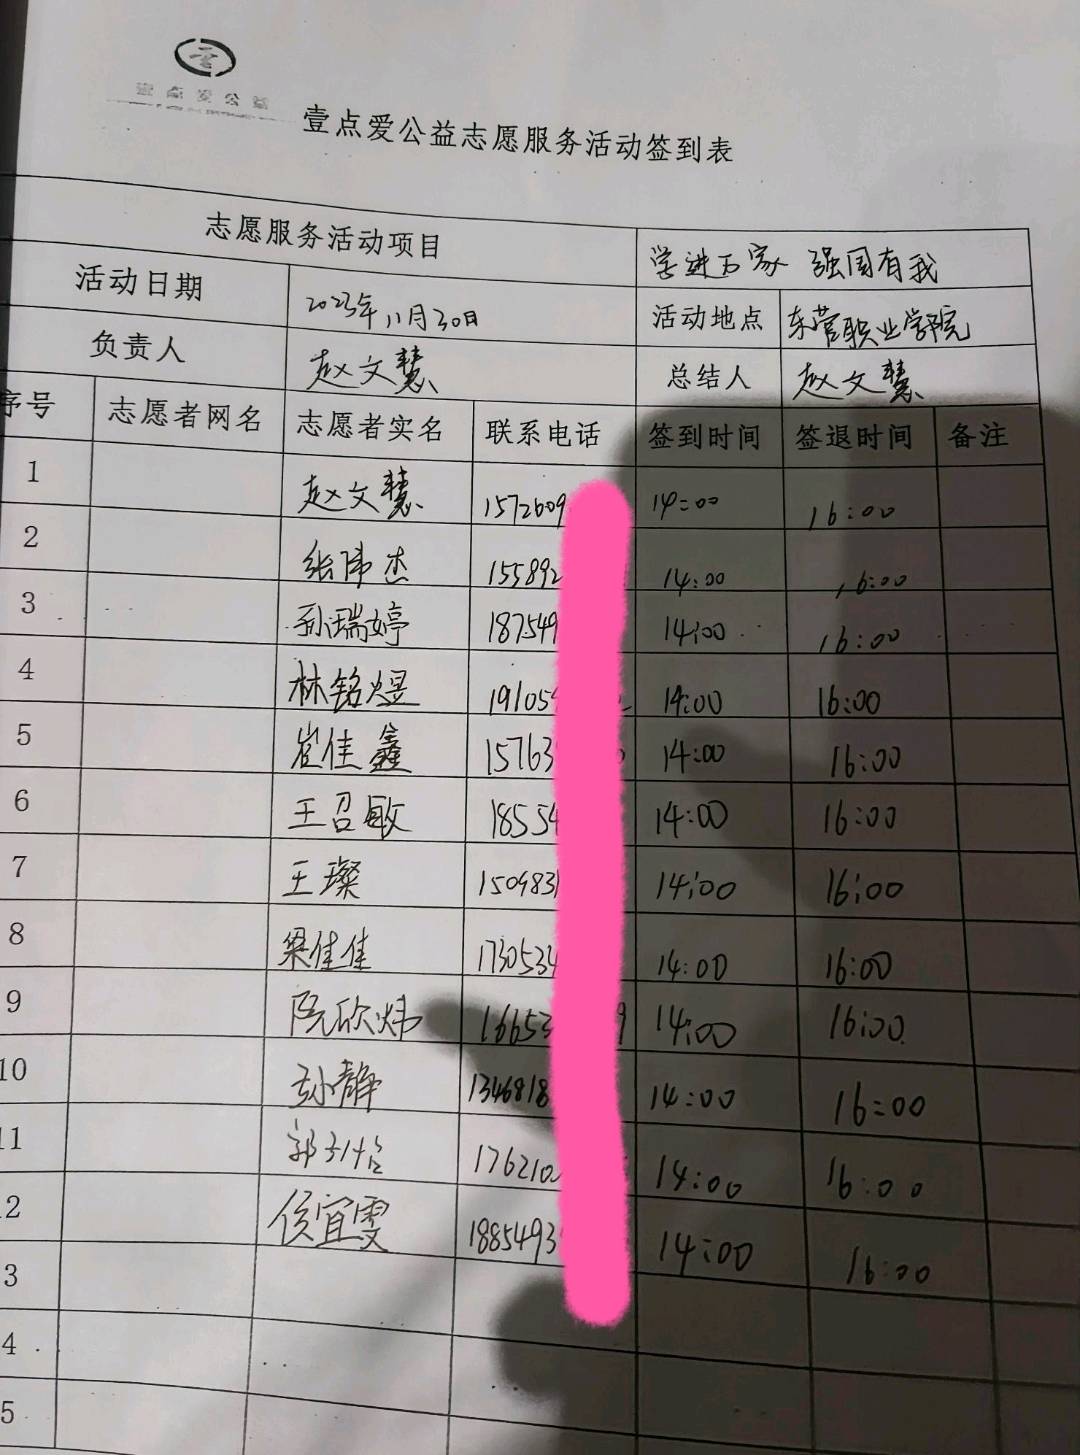 壹点爱公益
壹点爱公益志愿服务活动签到表
志愿服务活动项目 学进万家 强国有我
活动日期 2023年11月30日 活动地点 东营职业学院
负责人 赵文慧 总结人 赵文慧
序号 志愿者网名 志愿者实名 联系电话 签到时间 签退时间 备注
1 赵文慧 1572609 14:00 16:00
2 张玮杰 155892 14:00 16:00
3 孙瑞婷 187549 14:00 16:00
4 林铭煜 19105 14:00 16:00
5 崔佳鑫 15763 14:00 16:00
6 王召敏 18554 14:00 16:00
7 王璨 1509831 14:00 16:00
8 梁佳佳 1730534 14:00 16:00
9 阮欣炜 16653 9 14:00 16:00
10 孙静 1346818 14:00 16:00
11 郭 176210 14:00 16:00
12 侯宜雯 1885493 14:00 16:00
3
4
5